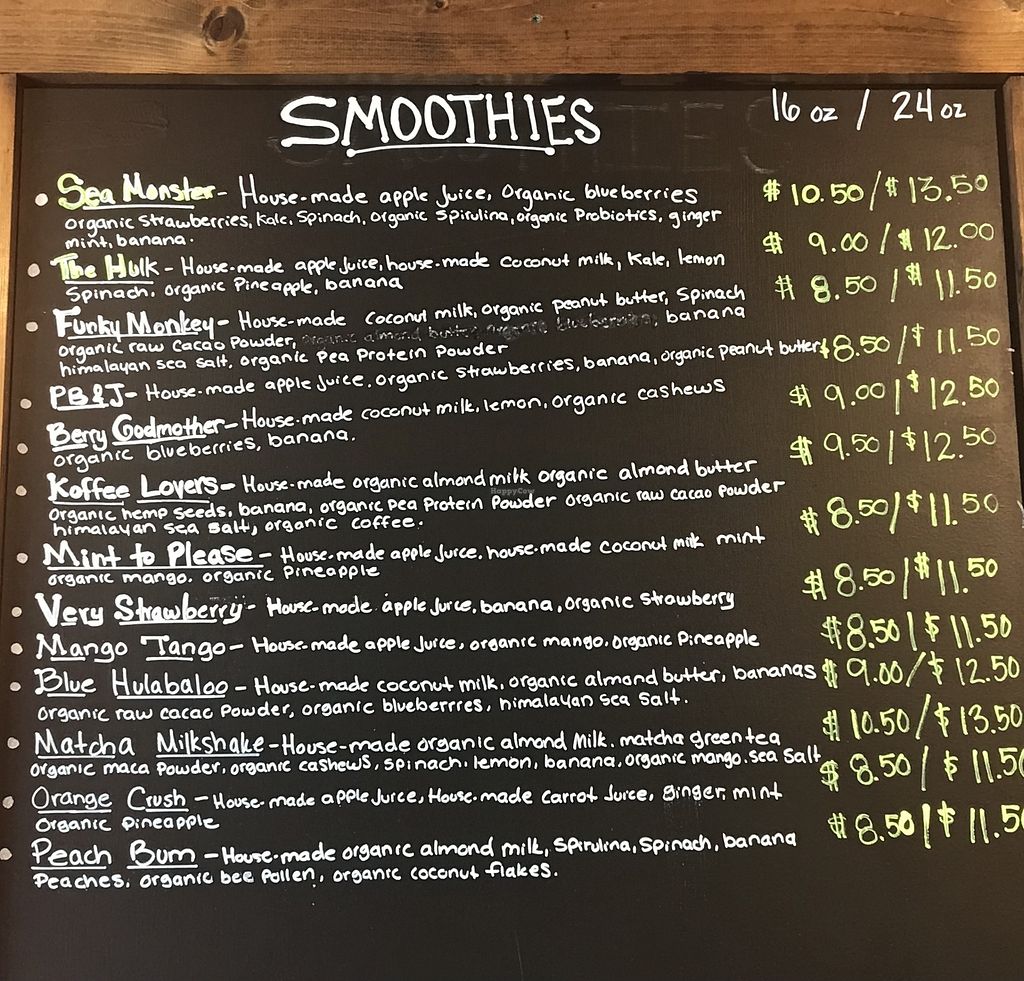 SMOOTHIES 16 oz / 24 oz
Sea Monster- House-made apple Juice, Organic blueberries $10.50/$13.50
organic Strawberries, Kale, Spinach, organic Spirulina, organic Probiotics, ginger
mint, banana.
The Hulk - House-made apple Juice, house-made coconut milk, Kale, lemon $9.00/$12.00
Spinach, organic Pineapple, banana
Funky Monkey- House-made coconut milk, organic peanut butter, Spinach $8.50/$11.50
organic raw cacao Powder, banana
himalayan sea salt, organic Pea Protein Powder
PB&J- House-made apple Juice, organic strawberries, banana, organic peanut butter $8.50/$11.50
Berry Godmother- House-made coconut milk, lemon, organic cashews $9.00/$12.50
organic blueberries, banana.
Koffee Lovers- House-made organic almond milk organic almond butter $9.50/$12.50
Organic hemp seeds, banana, organic pea Protein Powder organic raw cacao Powder
himalayan sea salt, organic coffee.
Mint to Please - House-made apple Juice, house-made coconut milk mint $8.50/$11.50
organic mango, organic Pineapple
Very Strawberry- House-made apple Juice, banana, organic strawberry $8.50/$11.50
Mango Tango- House-made apple Juice, organic mango, organic Pineapple $8.50/$11.50
Blue Hulabaloo - House-made coconut milk, organic almond butter, bananas $9.00/$12.50
organic raw cacao Powder, organic blueberries, himalayan sea salt.
Matcha Milkshake -House-made organic almond Milk, matcha green tea $10.50/$13.50
organic maca Powder, organic cashews, spinach, lemon, banana, organic mango, sea salt
Orange Crush - House-made apple Juice, House-made carrot Juice, ginger, mint $8.50/$11.50
Organic pineapple
Peach Bum - House-made organic almond milk, Spirulina, Spinach, banana $8.50/$11.50
Peaches, organic bee Pollen, organic coconut flakes.
HappyCow